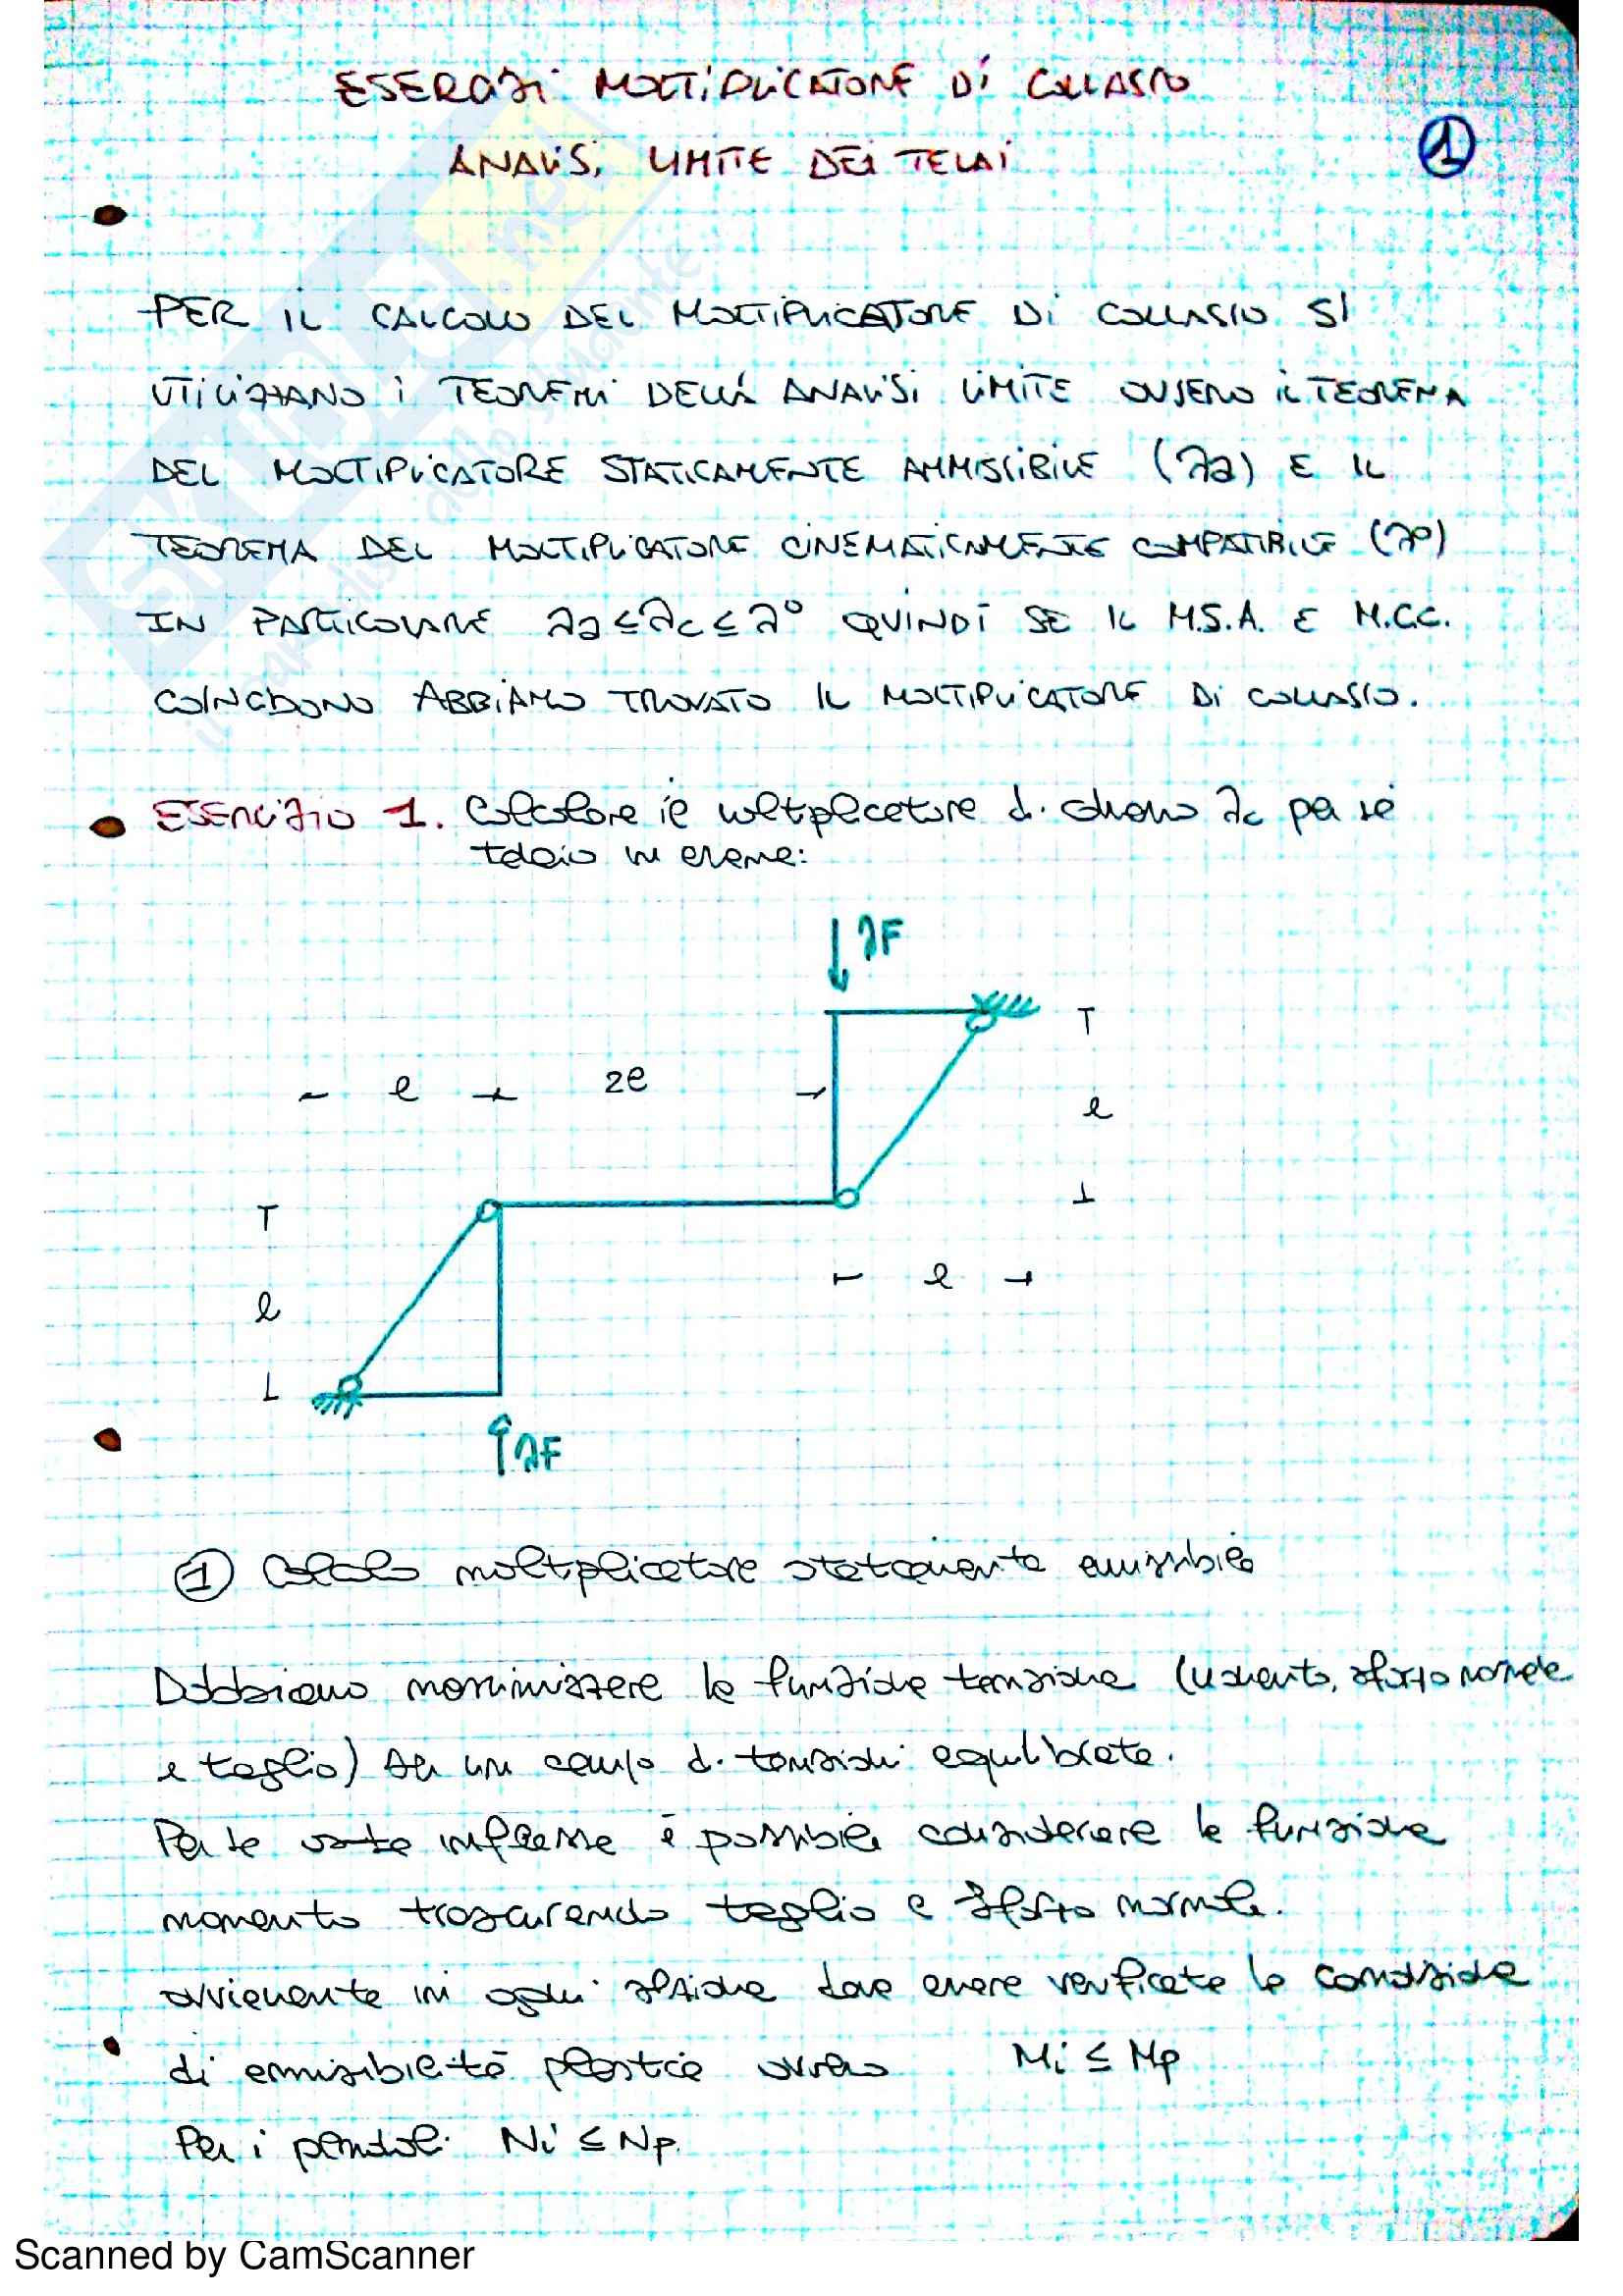 ESERCIZI MOLTIPLICATORE DI COLLASSO
ANALISI LIMITE DEI TELAI
1
PER IL CALCOLO DEL MOLTIPLICATORE DI COLLASSO SI
UTILIZZANO I TEOREMI DELL'ANALISI LIMITE OVVERO IL TEOREMA
DEL MOLTIPLICATORE STATICAMENTE AMMISSIBILE (λa) E IL
TEOREMA DEL MOLTIPLICATORE CINEMATICAMENTE COMPATIBILE (λ°)
IN PARTICOLARE λa ≤ λc ≤ λ° QUINDI SE IL M.S.A. E M.C.C.
COINCIDONO ABBIAMO TROVATO IL MOLTIPLICATORE DI COLLASSO.
ESERCIZIO 1. Calcolare il moltiplicatore di λc per il
telaio in esame:
λF
l 2l
T
l
⊥
T
l
⊥
l
λF
1 Calcolo moltiplicatore staticamente ammissibile
Dobbiamo massimizzare la funzione tensione (momento, sforzo normale
e taglio) su un campo di tensioni equilibrate.
Per le inflesse è possibile considerare la funzione
momento trascurando taglio e sforzo normale.
ovviamente in ogni sezione deve essere verificata la condizione
di ammissibilità plastica ovvero Mi ≤ Mp
Per i pendoli Ni ≤ Np.
Scanned by CamScanner
SKUOLA.net